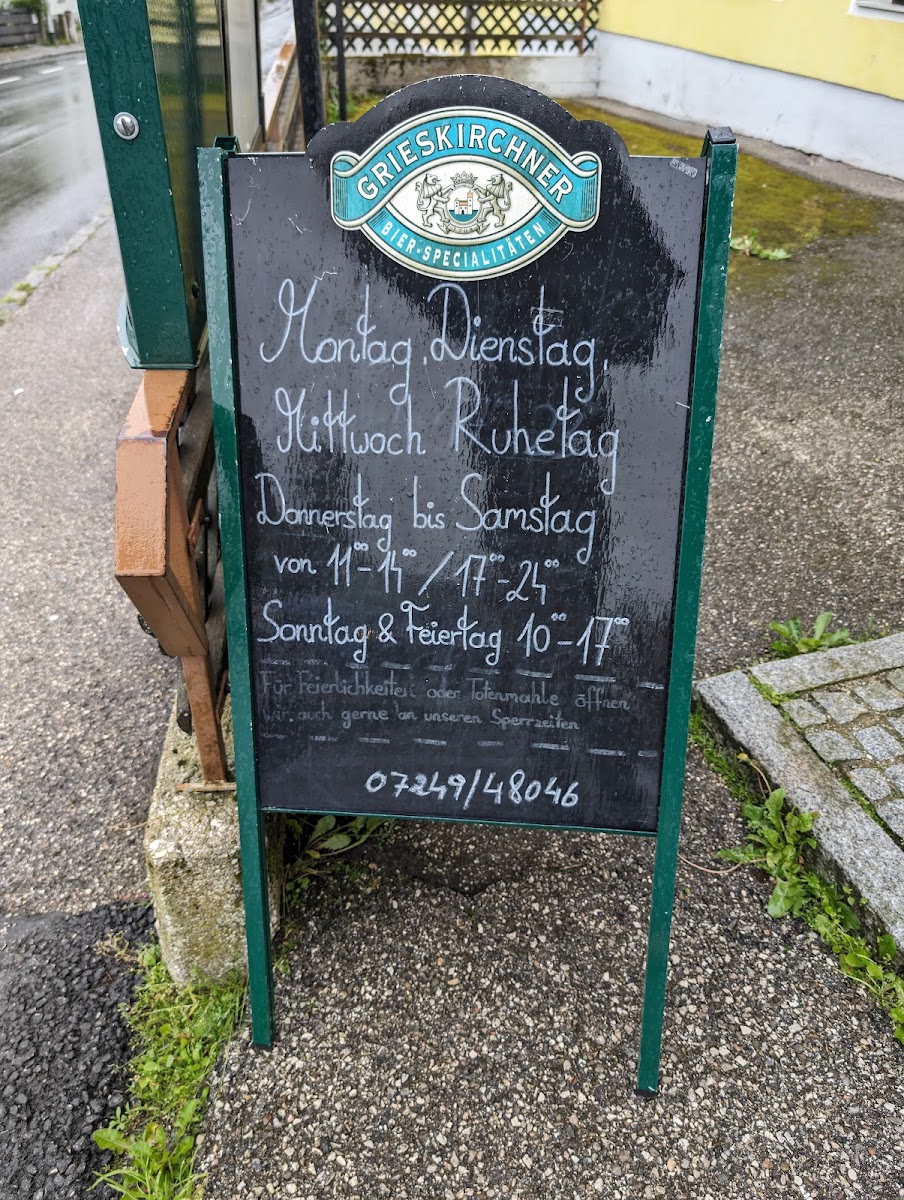 GRIESKIRCHNER
BIER-SPECIALITÄTEN
Montag, Dienstag,
Mittwoch Ruhetag
Donnerstag bis Samstag
von 11⁰⁰-14⁰⁰ / 17⁰⁰-24⁰⁰
Sonntag & Feiertag 10⁰⁰-17⁰⁰
Für Feierlichkeiten oder Totenmahle öffnen
wir auch gerne an unseren Sperrzeiten
07249/48046